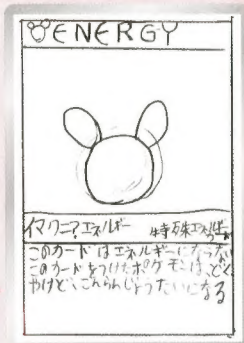 ENERGY
イマクニ?エネルギー 特殊エネルギー
このカードはエネルギーにならない
このカードをつけたポケモンは、どく
やけど、こんらんじょうたいになる